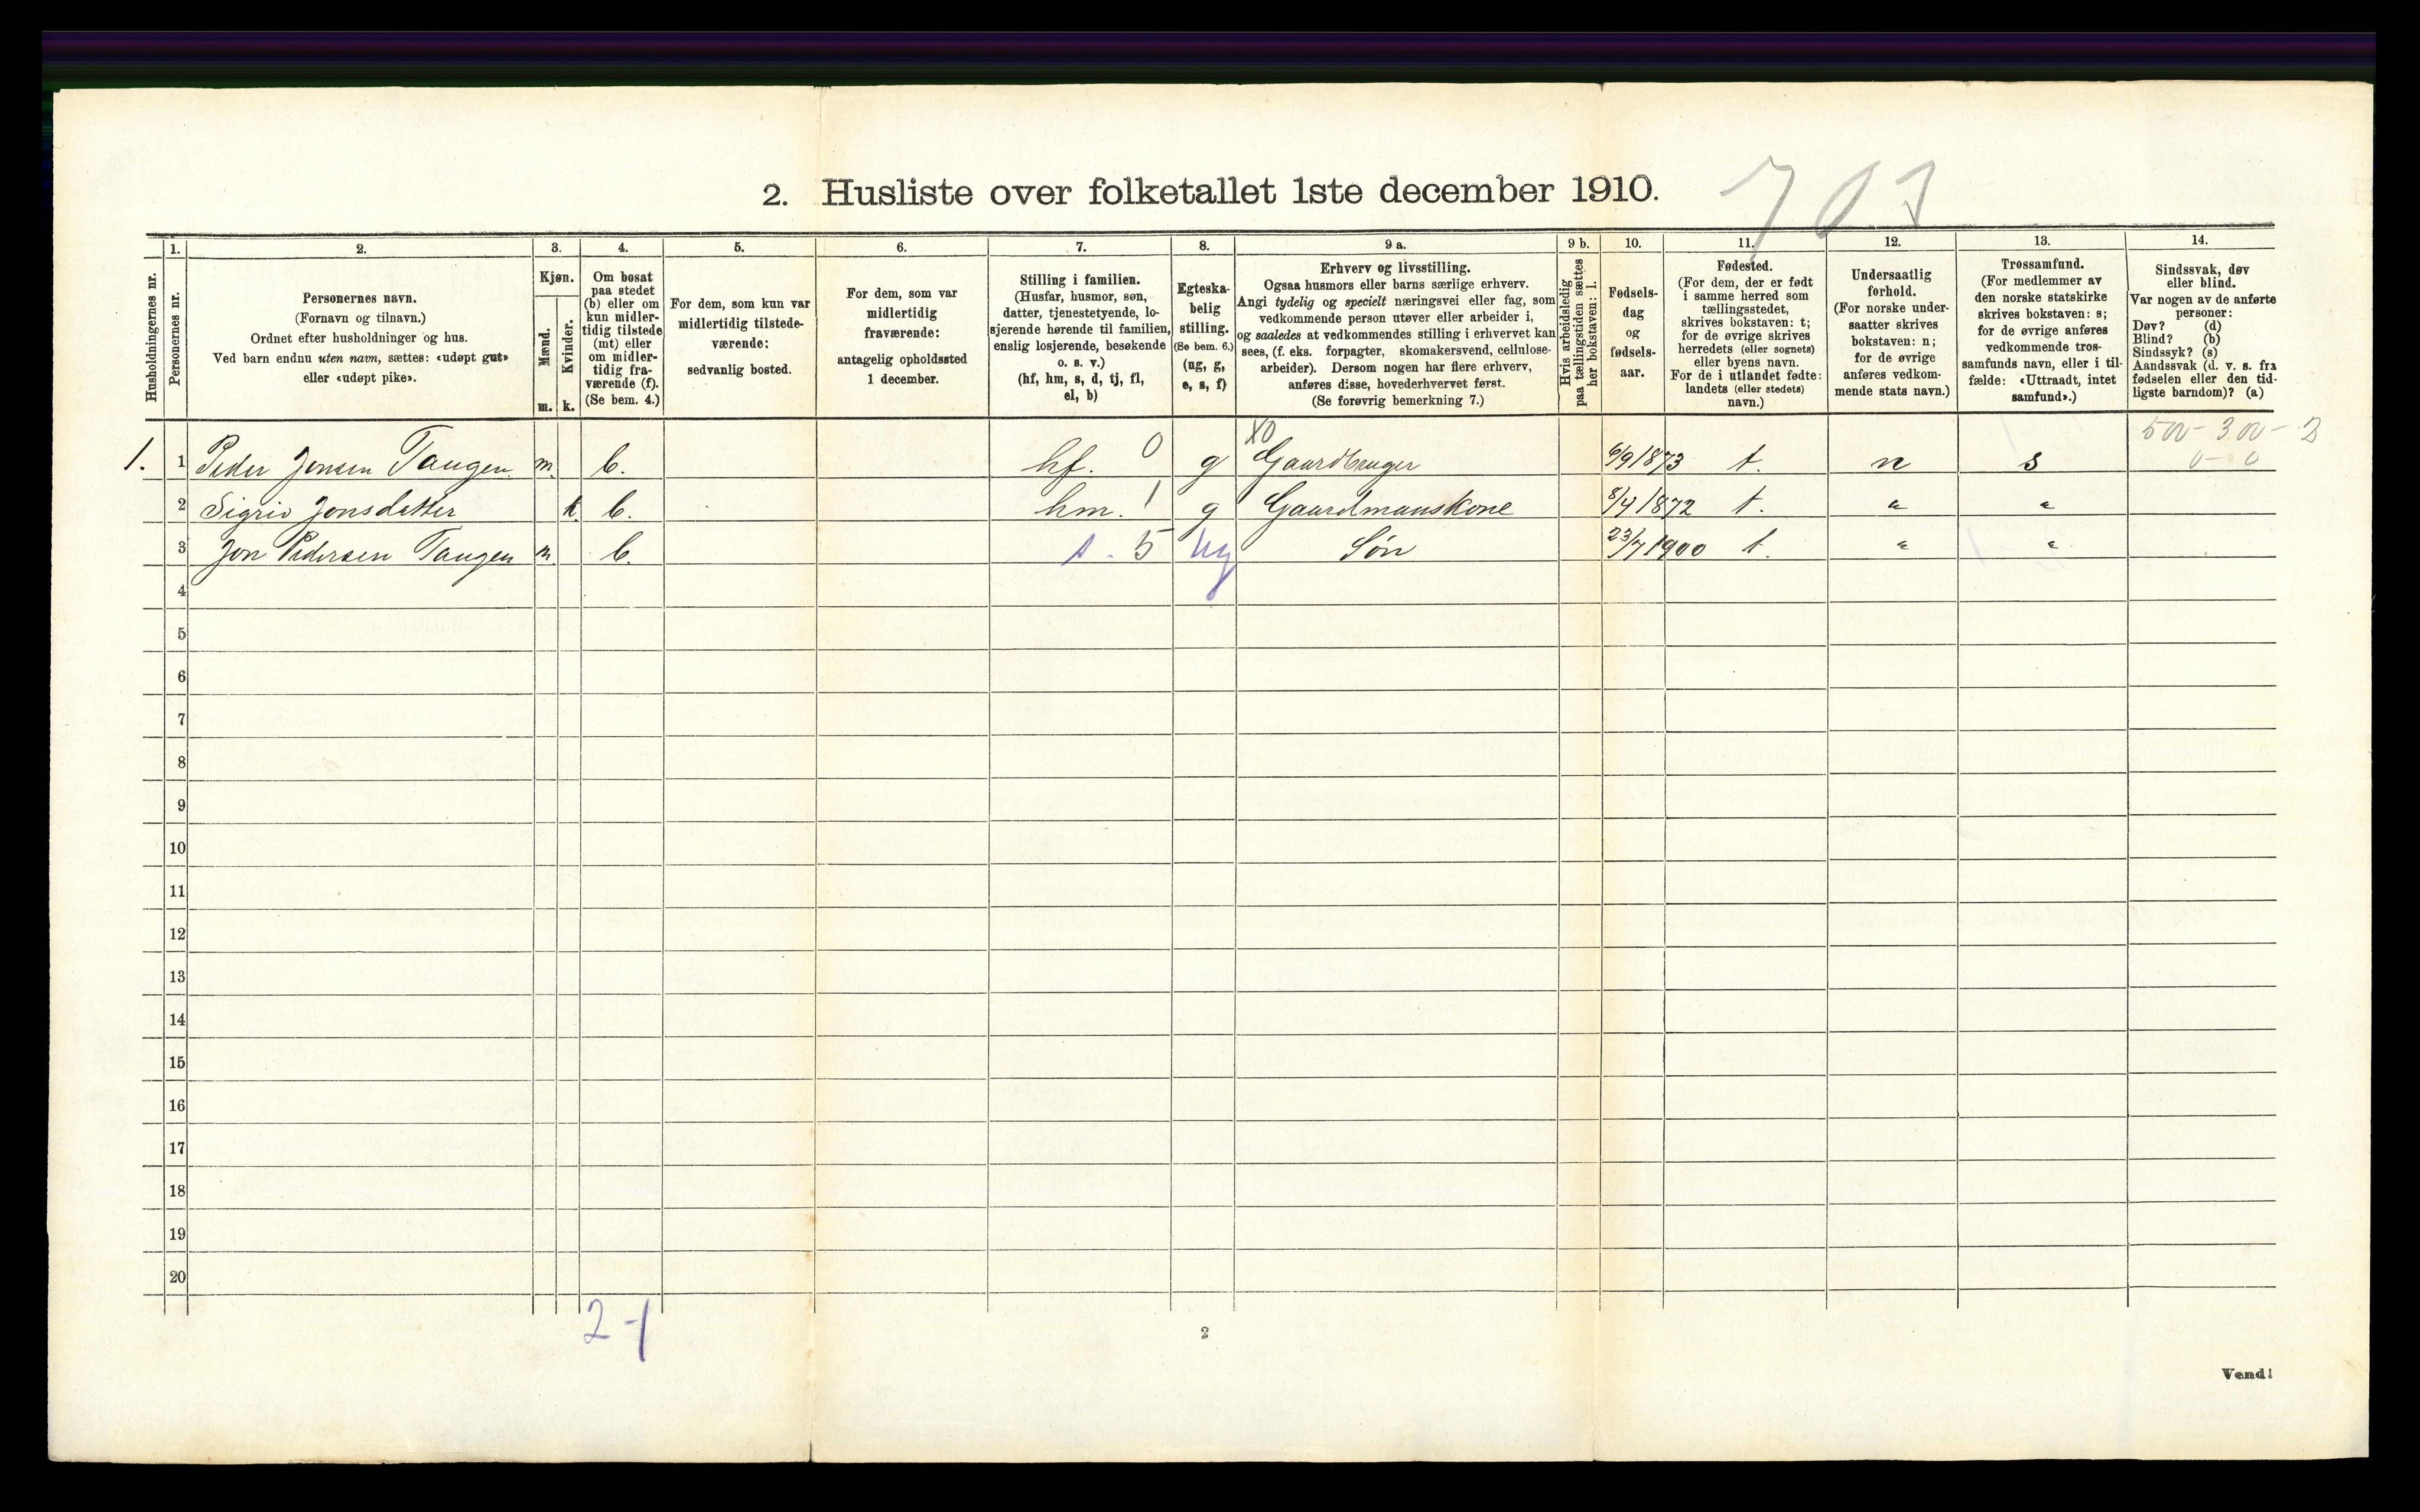 2. Husliste over folketallet 1ste december 1910.
Husholdningernes nr.
1.
Personernes nr.
2.
Personernes navn.
(Fornavn og tilnavn.)
Ordnet efter husholdninger og hus.
Ved barn endnu uten navn, sættes: «udøpt gut»
eller «udøpt pike».
3.
Kjøn.
Mænd.
Kvinder.
m. k.
4.
Om bosat
paa stedet
(b) eller om
kun midler-
tidig tilstede
(mt) eller
om midler-
tidig fra-
værende (f).
(Se bem. 4.)
5.
For dem, som kun var
midlertidig tilstede-
værende:
sedvanlig bosted.
6.
For dem, som var
midlertidig
fraværende:
antagelig opholdssted
1 december.
7.
Stilling i familien.
(Husfar, husmor, søn,
datter, tjenestetyende, lo-
sjerende hørende til familien,
enslig losjerende, besøkende
o. s. v.)
(hf, hm, s, d, tj, fl,
el, b)
8.
Egteska-
belig
stilling.
(Se bem. 6.)
(ug, g,
e, s, f)
9 a.
Erhverv og livsstilling.
Ogsaa husmors eller barns særlige erhverv.
Angi tydelig og specielt næringsvei eller fag, som
vedkommende person utøver eller arbeider i,
og saaledes at vedkommendes stilling i erhvervet kan
sees, (f. eks. forpagter, skomakersvend, cellulose-
arbeider). Dersom nogen har flere erhverv,
anføres disse, hovederhvervet først.
(Se forøvrig bemerkning 7.)
9 b.
Hvis arbeidsledig
paa tællingstiden sættes
her bokstaven: l.
10.
Fødsels-
dag
og
fødsels-
aar.
11.
Fødested.
(For dem, der er født
i samme herred som
tællingsstedet,
skrives bokstaven: t;
for de øvrige skrives
herredets (eller sognets)
eller byens navn.
For de i utlandet fødte:
landets (eller stedets)
navn.)
12.
Undersaatlig
forhold.
(For norske under-
saatter skrives
bokstaven: n;
for de øvrige
anføres vedkom-
mende stats navn.)
13.
Trossamfund.
(For medlemmer av
den norske statskirke
skrives bokstaven: s;
for de øvrige anføres
vedkommende tros-
samfunds navn, eller i til-
fælde: «Uttraadt, intet
samfund».)
14.
Sindssvak, døv
eller blind.
Var nogen av de anførte
personer:
Døv? (d)
Blind? (b)
Sindssyk? (s)
Aandssvak (d. v. s. fra
fødselen eller den tid-
ligste barndom)? (a)
500 - 300 - 2
0 - 0
X0
1. 1 Peder Jonsen Tangen m. b. hf. 0 g Gaardbruger 6/9 1873 t. n s
2 Sigrid Jonsdatter k b. hm. 1 g Gaardmanskone 8/4 1872 t. " "
3 Jon Pedersen Tangen m. b. s. 5 ug Søn 23/7 1900 t. " "
4
5
6
7
8
9
10
11
12
13
14
15
16
17
18
19
20
2-1
2
Vend!